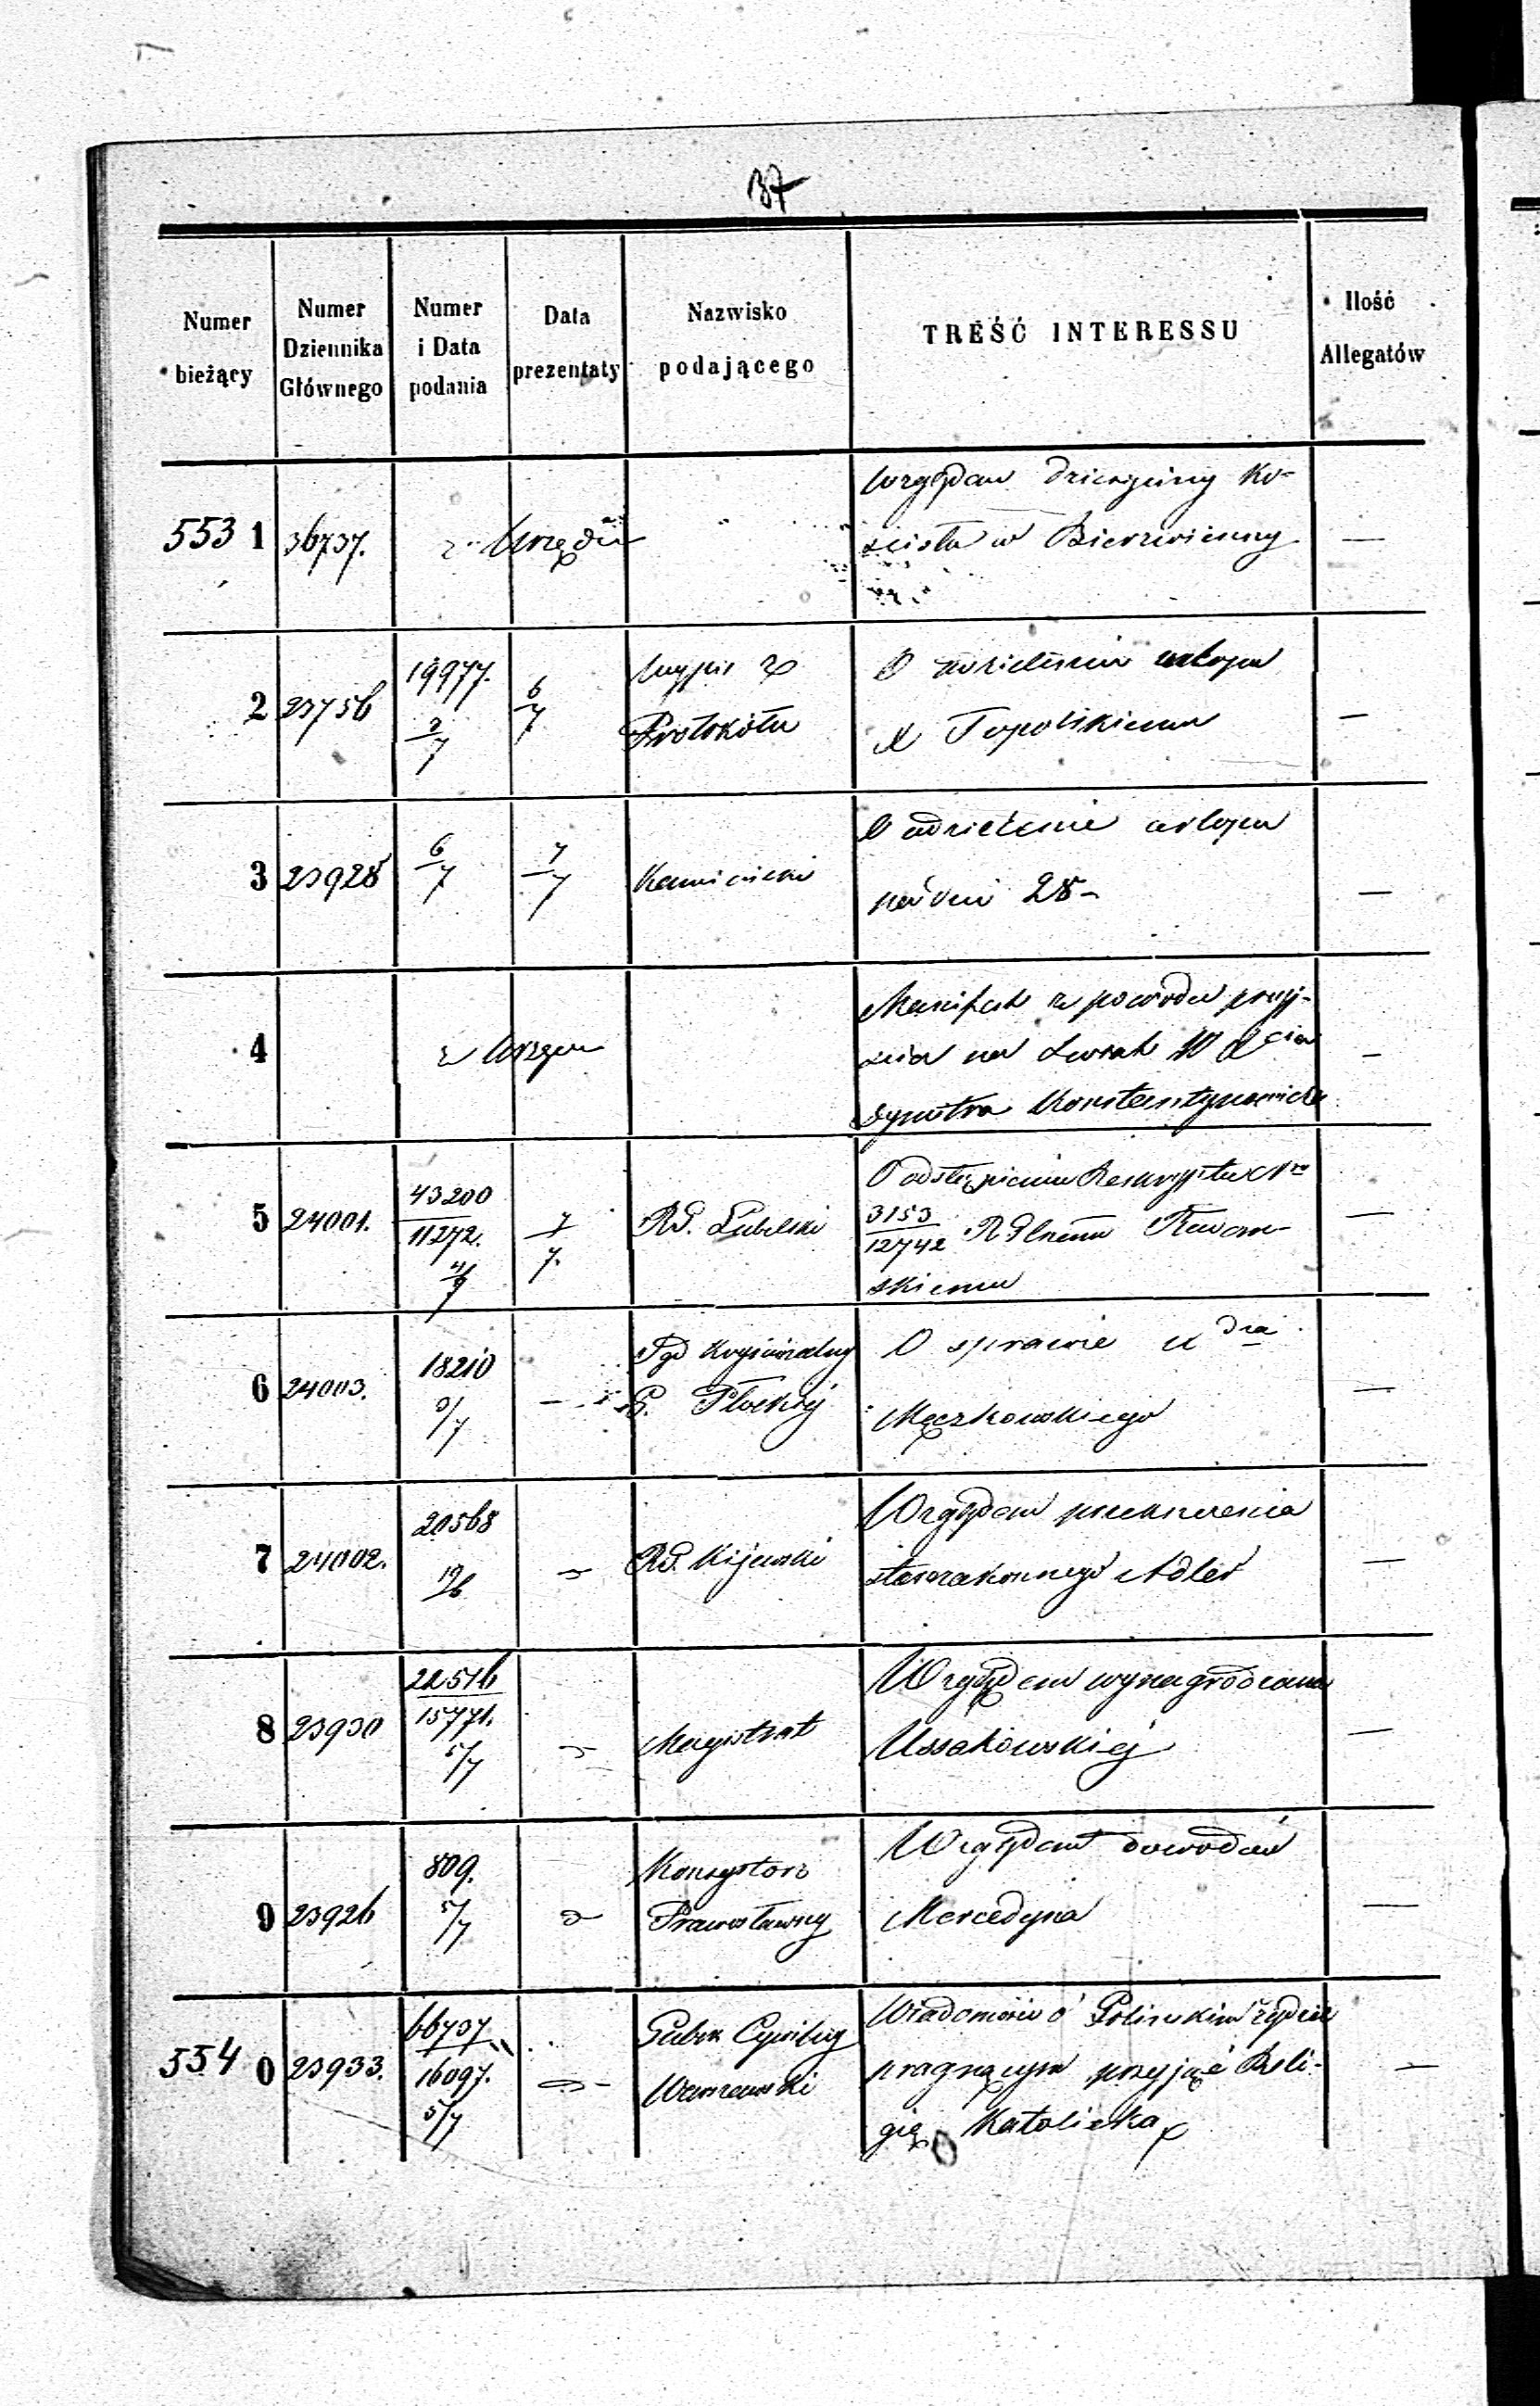 37
Numer bieżący
Numer Dziennika Głównego
Numer i Data podania
Data prezentaty
Nazwisko podającego
TREŚĆ INTERESSU
Ilość Allegatów
553 1 36737. z Urzędu
Względem dziesięciny Ko-
ścioła w Bierzwienny —
2 23756 19977. 3/7 6/7 Wypis z
Protokołu
O udzieleniu urlopu
X Topolskiemu —
3 23928 6/7 7/7
O udzielenie urlopu
na dni 28 —
4 z Urzędu
Manifest z powodu przyj-
ścia na świat W Xcia
Dymitra Konstantynowicza —
5 24001. 43200/11272. 4/7 7/7. RG. Lubelski
O odstąpieniu Reskryptu Nro
3153/12742 skiemu —
6 24003. 18210 3/7 —
G. Płockiej
O sprawie
Męczkowskiego —
7 24002. 20568 19/6 RG. Kijewski
Względem
starozakonnego Adler —
8 23930 22516/15771. 5/7 Magistrat
Względem wynagrodzenia
Ussakowskiej —
9 23926 809. 5/7 Konsystorz
Prawosławny
Względem dowodów
Mercedyna —
554 0 23933. 66737/16097. 5/7 Guber Cywilny
Warszawski
Wiadomość o żydzie
pragnącym przyjąć Reli-
gię Katolicką —